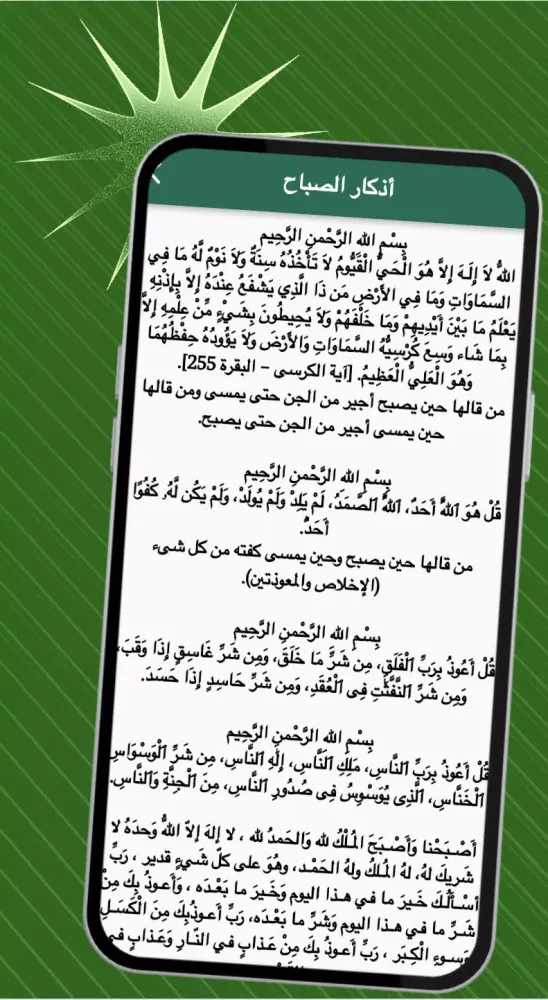 أذكار الصباح
بِسْمِ الله الرَّحْمنِ الرَّحِيم
اللّهُ لاَ إِلَـهَ إِلاَّ هُوَ الْحَيُّ الْقَيُّومُ لاَ تَأْخُذُهُ سِنَةٌ وَلاَ نَوْمٌ لَّهُ مَا فِي
السَّمَاوَاتِ وَمَا فِي الأَرْضِ مَن ذَا الَّذِي يَشْفَعُ عِنْدَهُ إِلاَّ بِإِذْنِهِ
يَعْلَمُ مَا بَيْنَ أَيْدِيهِمْ وَمَا خَلْفَهُمْ وَلاَ يُحِيطُونَ بِشَيْءٍ مِّنْ عِلْمِهِ إِلاَّ
بِمَا شَاء وَسِعَ كُرْسِيُّهُ السَّمَاوَاتِ وَالأَرْضَ وَلاَ يَؤُودُهُ حِفْظُهُمَا
وَهُوَ الْعَلِيُّ الْعَظِيمُ. [آية الكرسى – البقرة 255].
من قالها حين يصبح أجير من الجن حتى يمسى ومن قالها
حين يمسى أجير من الجن حتى يصبح.
بِسْمِ الله الرَّحْمنِ الرَّحِيم
قُلْ هُوَ ٱللَّهُ أَحَدٌ، ٱللَّهُ ٱلصَّمَدُ، لَمْ يَلِدْ وَلَمْ يُولَدْ، وَلَمْ يَكُن لَّهُۥ كُفُوًا
أَحَدٌۢ.
من قالها حين يصبح وحين يمسى كفته من كل شىء
(الإخلاص والمعوذتين).
بِسْمِ الله الرَّحْمنِ الرَّحِيم
قُلْ أَعُوذُ بِرَبِّ ٱلْفَلَقِ، مِن شَرِّ مَا خَلَقَ، وَمِن شَرِّ غَاسِقٍ إِذَا وَقَبَ،
وَمِن شَرِّ ٱلنَّفَّٰثَٰتِ فِى ٱلْعُقَدِ، وَمِن شَرِّ حَاسِدٍ إِذَا حَسَدَ.
بِسْمِ الله الرَّحْمنِ الرَّحِيم
قُلْ أَعُوذُ بِرَبِّ ٱلنَّاسِ، مَلِكِ ٱلنَّاسِ، إِلَٰهِ ٱلنَّاسِ، مِن شَرِّ ٱلْوَسْوَاسِ
ٱلْخَنَّاسِ، ٱلَّذِى يُوَسْوِسُ فِى صُدُورِ ٱلنَّاسِ، مِنَ ٱلْجِنَّةِ وَٱلنَّاسِ.
أَصْـبَحْنا وَأَصْـبَحَ المُـلْكُ لله وَالحَمدُ لله ، لا إلهَ إلاّ اللّهُ وَحدَهُ لا
شَريكَ لهُ، لهُ المُـلكُ ولهُ الحَمْـد، وهُوَ على كلّ شَيءٍ قدير ، رَبِّ
أسْـأَلُـكَ خَـيرَ ما في هـذا اليوم وَخَـيرَ ما بَعْـدَه ، وَأَعـوذُ بِكَ مِنْ
شَـرِّ ما في هـذا اليوم وَشَرِّ ما بَعْـدَه، رَبِّ أَعـوذُبِكَ مِنَ الْكَسَـلِ
وَسـوءِ الْكِـبَر ، رَبِّ أَعـوذُ بِكَ مِنْ عَـذابٍ في النّـارِ وَعَـذابٍ في